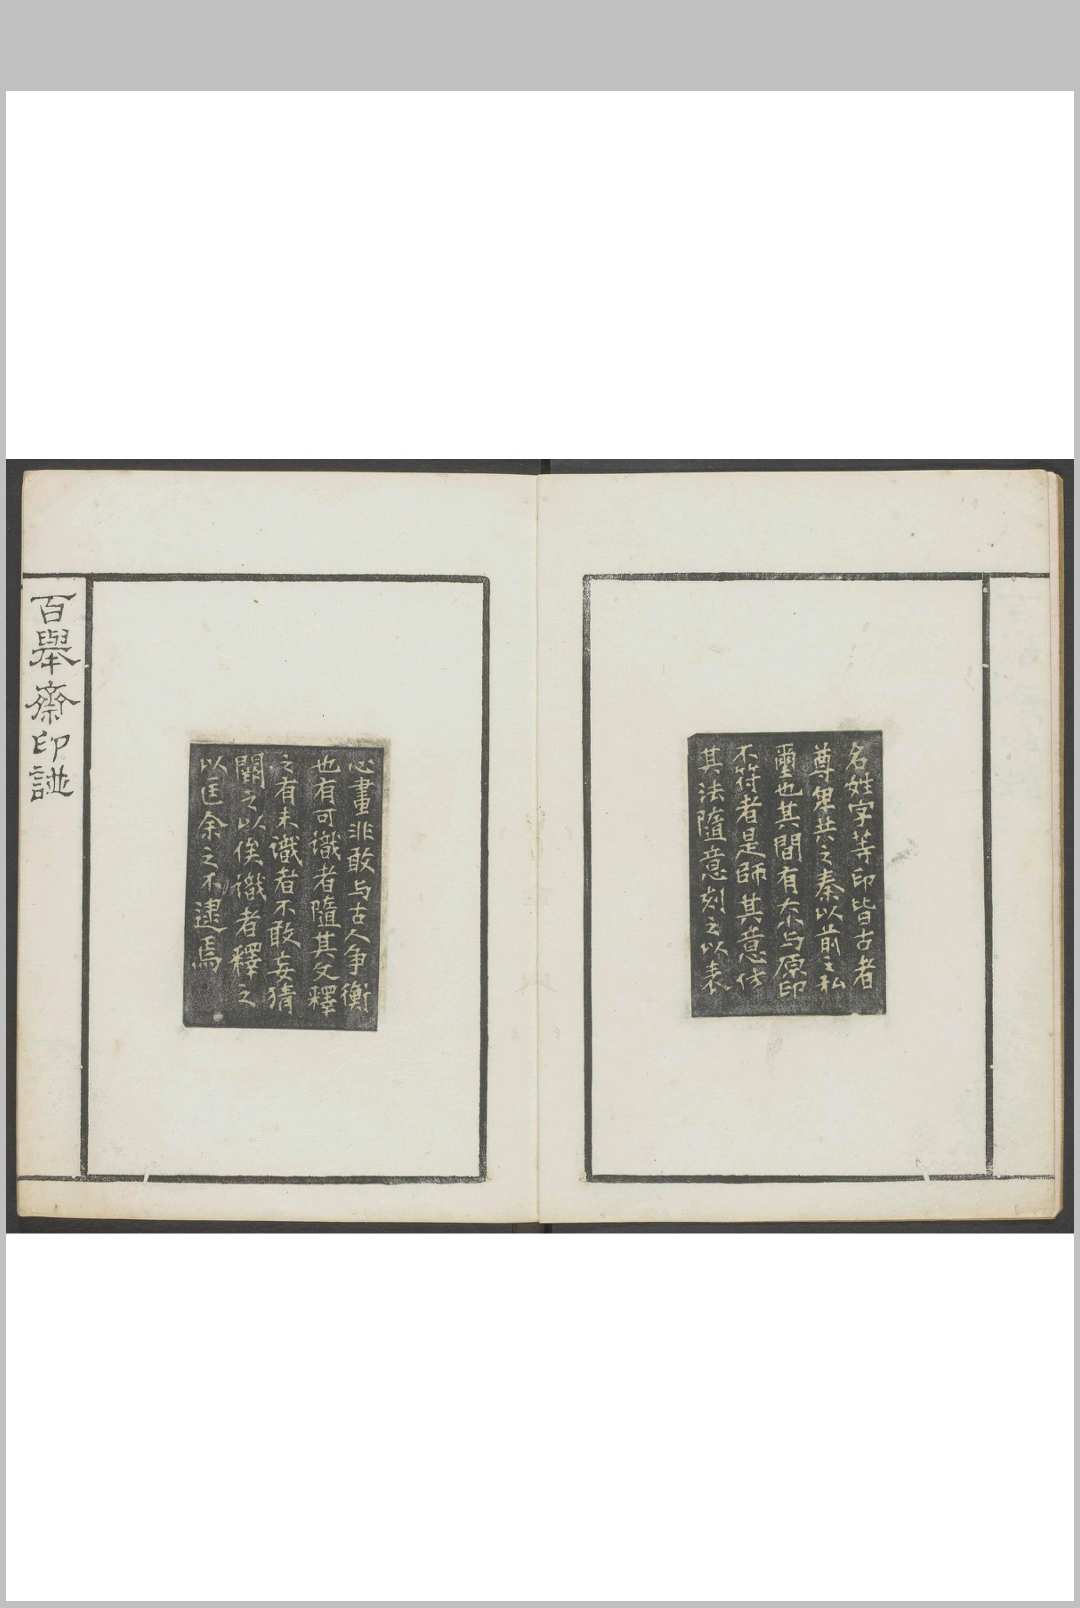 名姓字等印皆古者
尊卑共之秦以前之私
璽也其間有亦与原印
不符者是師其意仿
其法隨意刻之以表
心畫非敢与古人争衡
也有可識者隨其文釋
之有未識者不敢妄猜
闕之以俟識者釋之
以匡余之不逮焉
百舉齋印譜